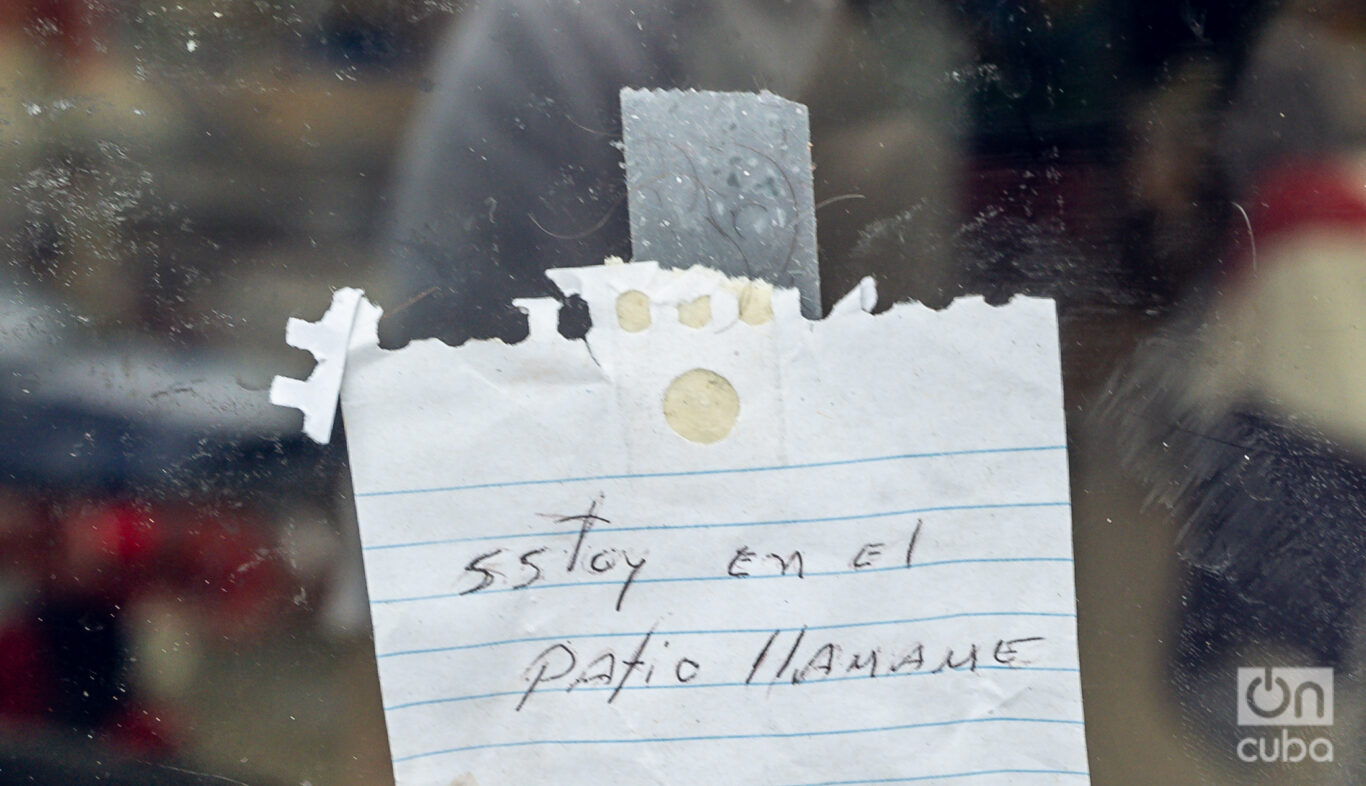 Estoy en el
patio llAMAME
On
cuba